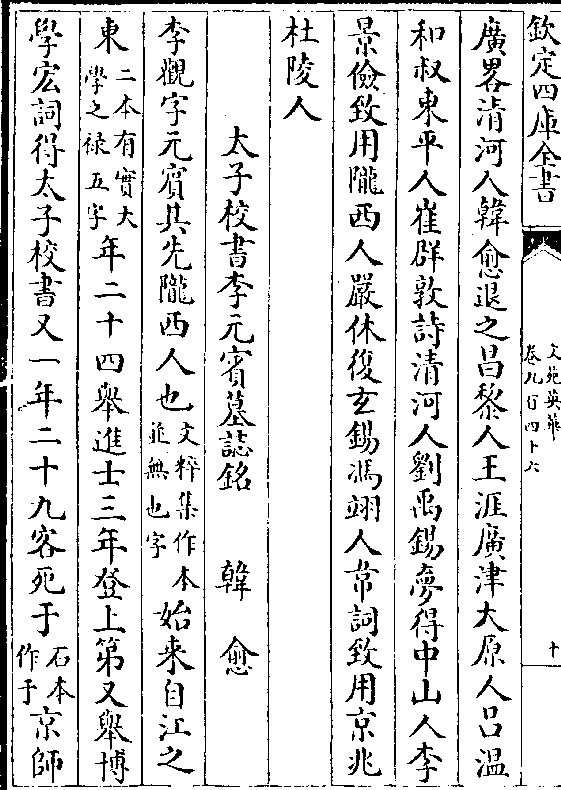 欽定四庫全書
文苑英華
卷九百四十六
十
廣畧清河人韓愈退之昌黎人王涯廣津大原人吕溫
和叔東平人崔群敦詩清河人劉禹錫夢得中山人李
景儉致用隴西人嚴休復玄錫馮翊人韋詞致用京兆
杜陵人
太子校書李元賓墓誌銘 韓愈
李觀字元賓其先隴西人也文粹集作本並無也字始來自江之
東二本有實大學之禄五字年二十四舉進士三年登上第又舉博
學宏詞得太子校書又一年二十九客死于石本作于京師